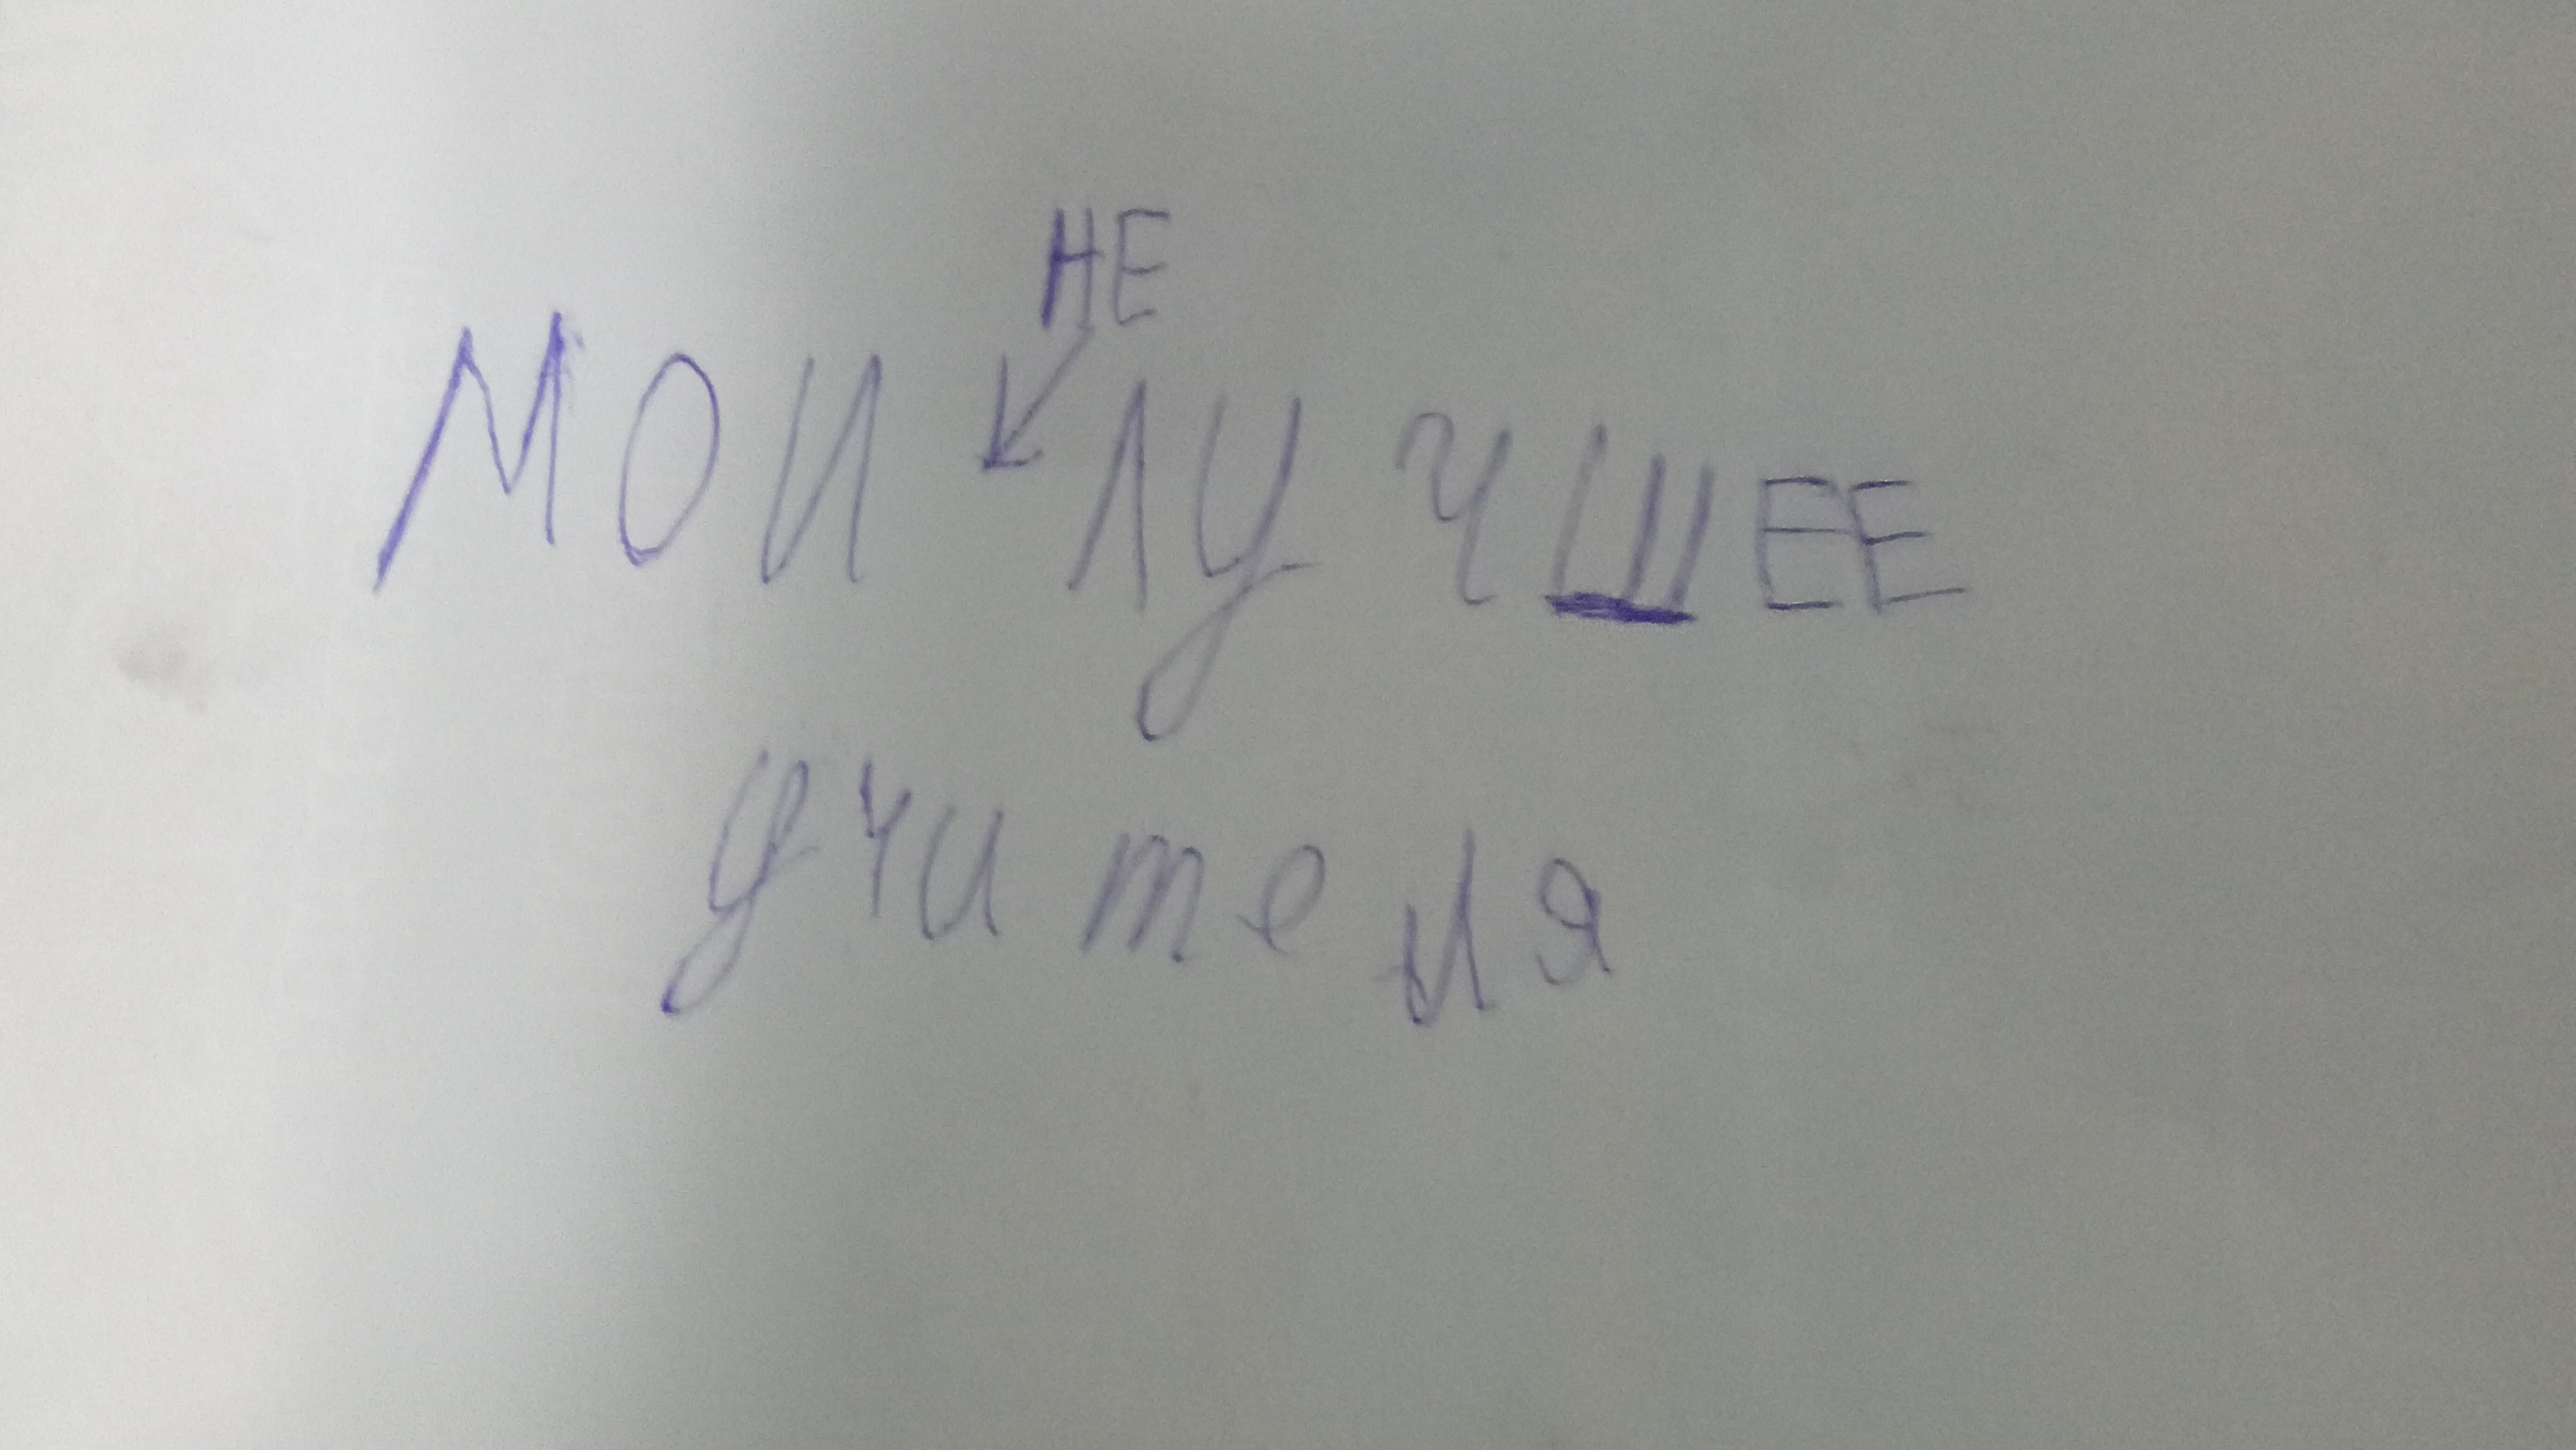 НЕ
МОИ ЛУЧШЕЕ
учителя